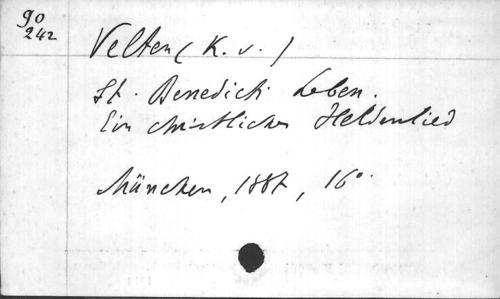 90
242
Velten (K. v.)
St. Benedicti Leben.
Ein christliches Heldenlied
München, 1887, 16°.